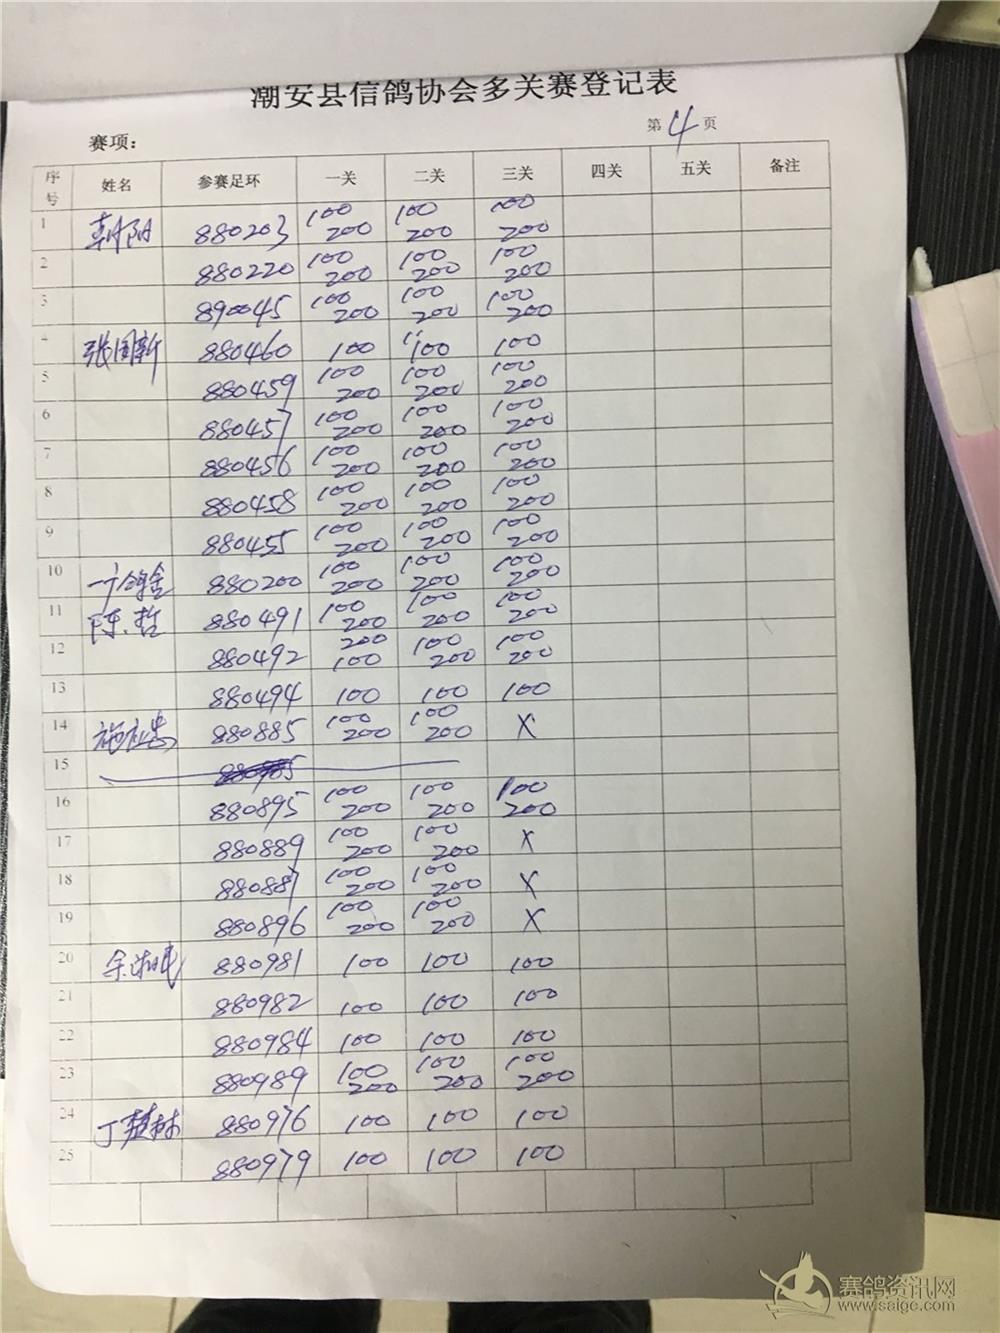 潮安县信鸽协会多关赛登记表
第4页
赛项：
序号 姓名 参赛足环 一关 二关 三关 四关 五关 备注
1 朝阳 880203 100 200 100 200 100 200
2 880220 100 200 100 200 100 200
3 890045 100 200 100 200 100 200
4 张国新 880460 100 100 100
5 880459 100 200 100 200 100 200
6 880457 100 200 100 200 100 200
7 880456 100 200 100 200 100 200
8 880458 100 200 100 200 100 200
9 880455 100 200 100 200 100 200
10 一个鸽舍 880200 100 200 100 200 100 200
11 陈哲 880491 100 200 100 200 100 200
12 880492 200 100 100 200 100 200
13 880494 100 100 100
14 施应忠 880885 100 200 100 200 X
15
16 880895 100 200 100 200 100 200
17 880889 100 200 100 200 X
18 880887 100 200 100 200 X
19 880896 100 200 100 200 X
20 880981 100 100 100
21 880982 100 100 100
22 880984 100 100 100
23 880989 100 200 100 200 100 200
24 丁楚林 880976 100 100 100
25 880979 100 100 100
赛鸽资讯网
www.saige.com